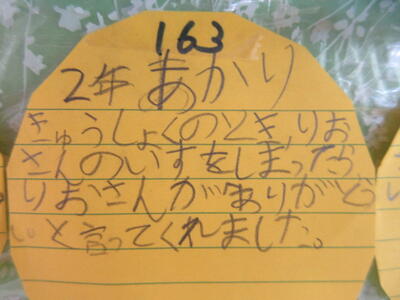 163
2年 あかり
きゅうしょくのとき、りお
さんのいすをしまったら、
りおさんが「ありがとう
」と言ってくれました。